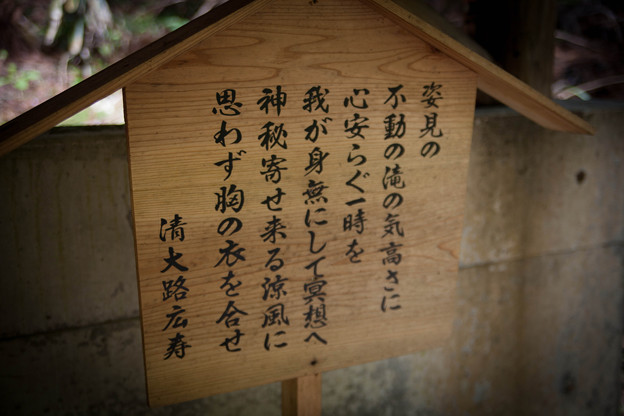 姿見の
不動の滝の気高さに
心安らぐ一時を
我が身無にして冥想へ
神秘寄せ来る涼風に
思わず胸の衣を合せ
清大路広寿